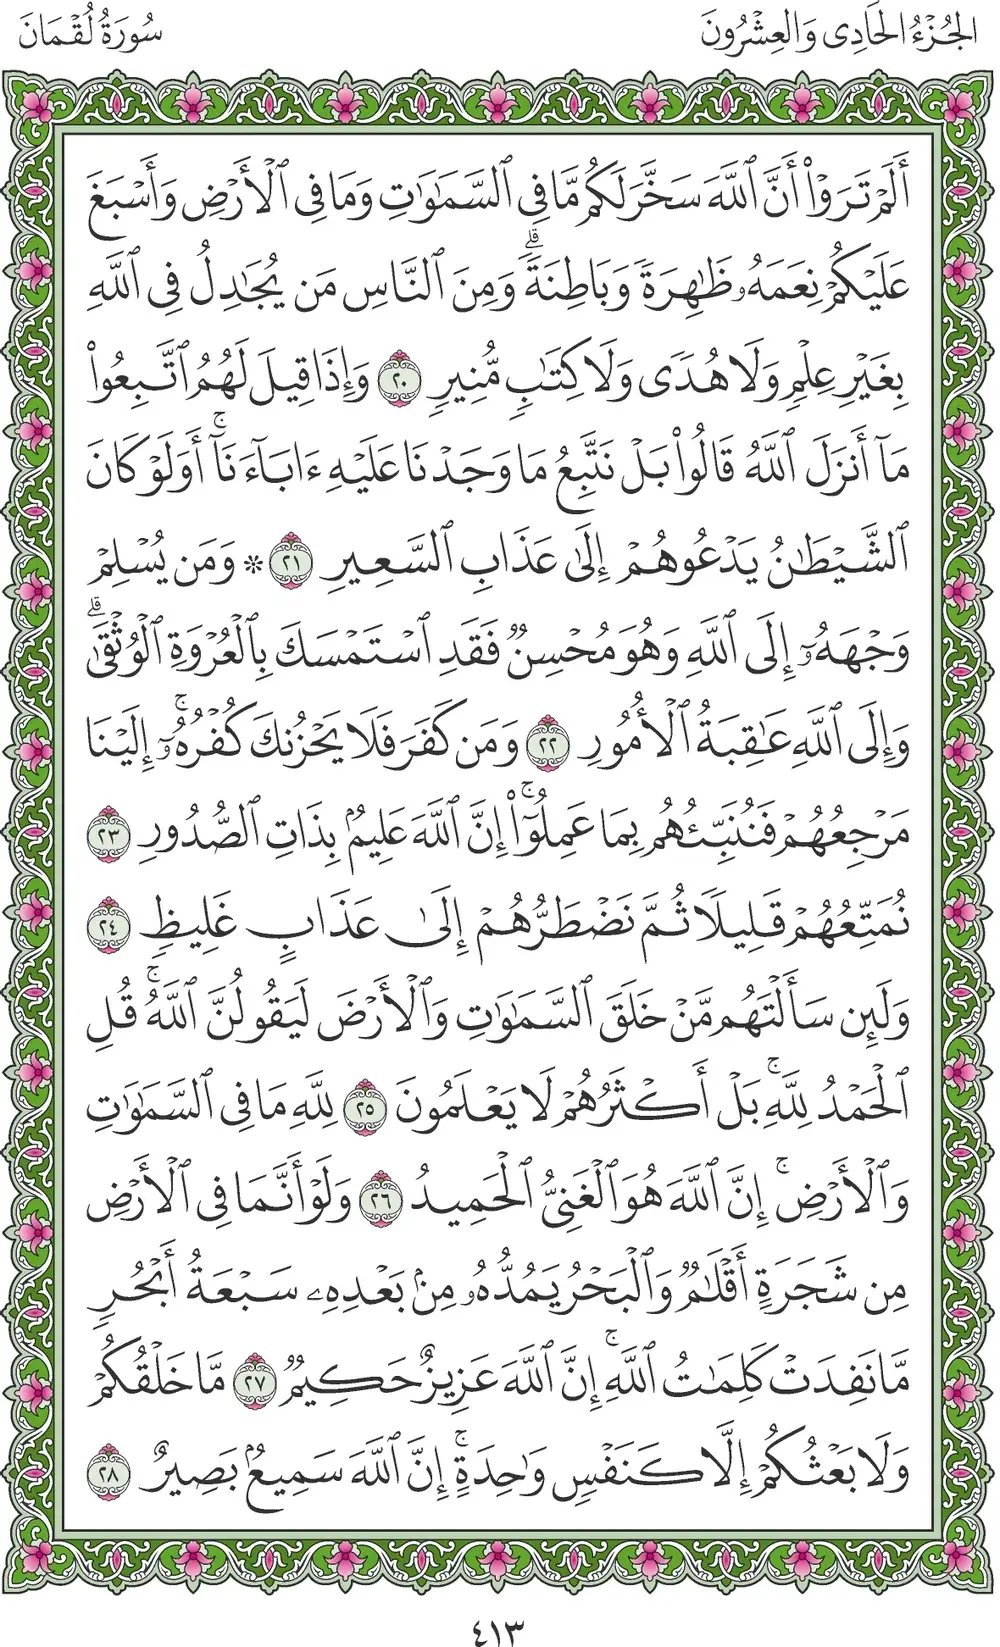 الجُزْءُ الحَادِي وَالعِشْرُونَ
سُورَةُ لُقْمَانَ
أَلَمْ تَرَوْا۟ أَنَّ ٱللَّهَ سَخَّرَ لَكُم مَّا فِى ٱلسَّمَـٰوَٰتِ وَمَا فِى ٱلْأَرْضِ وَأَسْبَغَ
عَلَيْكُمْ نِعَمَهُۥ ظَـٰهِرَةً وَبَاطِنَةً ۗ وَمِنَ ٱلنَّاسِ مَن يُجَـٰدِلُ فِى ٱللَّهِ
بِغَيْرِ عِلْمٍ وَلَا هُدًى وَلَا كِتَـٰبٍ مُّنِيرٍ ٢٠ وَإِذَا قِيلَ لَهُمُ ٱتَّبِعُوا۟
مَآ أَنزَلَ ٱللَّهُ قَالُوا۟ بَلْ نَتَّبِعُ مَا وَجَدْنَا عَلَيْهِ ءَابَآءَنَآ ۚ أَوَلَوْ كَانَ
ٱلشَّيْطَـٰنُ يَدْعُوهُمْ إِلَىٰ عَذَابِ ٱلسَّعِيرِ ٢١ * وَمَن يُسْلِمْ
وَجْهَهُۥٓ إِلَى ٱللَّهِ وَهُوَ مُحْسِنٌ فَقَدِ ٱسْتَمْسَكَ بِٱلْعُرْوَةِ ٱلْوُثْقَىٰ ۗ
وَإِلَى ٱللَّهِ عَـٰقِبَةُ ٱلْأُمُورِ ٢٢ وَمَن كَفَرَ فَلَا يَحْزُنكَ كُفْرُهُۥٓ ۚ إِلَيْنَا
مَرْجِعُهُمْ فَنُنَبِّئُهُم بِمَا عَمِلُوٓا۟ ۚ إِنَّ ٱللَّهَ عَلِيمٌۢ بِذَاتِ ٱلصُّدُورِ ٢٣
نُمَتِّعُهُمْ قَلِيلًا ثُمَّ نَضْطَرُّهُمْ إِلَىٰ عَذَابٍ غَلِيظٍ ٢٤
وَلَئِن سَأَلْتَهُم مَّنْ خَلَقَ ٱلسَّمَـٰوَٰتِ وَٱلْأَرْضَ لَيَقُولُنَّ ٱللَّهُ ۚ قُلِ
ٱلْحَمْدُ لِلَّهِ ۚ بَلْ أَكْثَرُهُمْ لَا يَعْلَمُونَ ٢٥ لِلَّهِ مَا فِى ٱلسَّمَـٰوَٰتِ
وَٱلْأَرْضِ ۚ إِنَّ ٱللَّهَ هُوَ ٱلْغَنِىُّ ٱلْحَمِيدُ ٢٦ وَلَوْ أَنَّمَا فِى ٱلْأَرْضِ
مِن شَجَرَةٍ أَقْلَـٰمٌ وَٱلْبَحْرُ يَمُدُّهُۥ مِنۢ بَعْدِهِۦ سَبْعَةُ أَبْحُرٍ
مَّا نَفِدَتْ كَلِمَـٰتُ ٱللَّهِ ۚ إِنَّ ٱللَّهَ عَزِيزٌ حَكِيمٌ ٢٧ مَّا خَلْقُكُمْ
وَلَا بَعْثُكُمْ إِلَّا كَنَفْسٍ وَٰحِدَةٍ ۚ إِنَّ ٱللَّهَ سَمِيعٌۢ بَصِيرٌ ٢٨
٤١٣